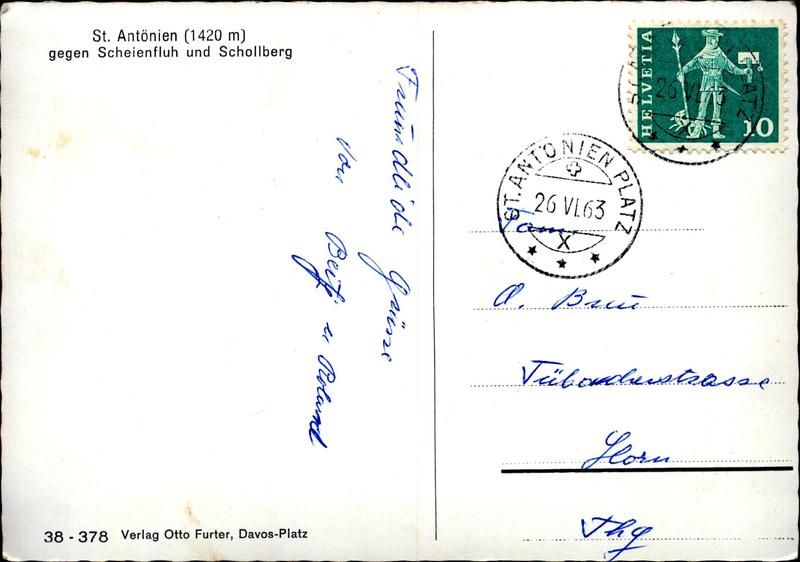 St. Antönien (1420 m)
gegen Scheienfluh und Schollberg
Freundliche Grüsse
von
u Roland
38 - 378 Verlag Otto Furter, Davos-Platz
HELVETIA
10
ST. ANTÖNIEN PLATZ
26 VI.63
X
ST. ANTÖNIEN PLATZ
26 VI.63
X
Fam.
Horn
Thg